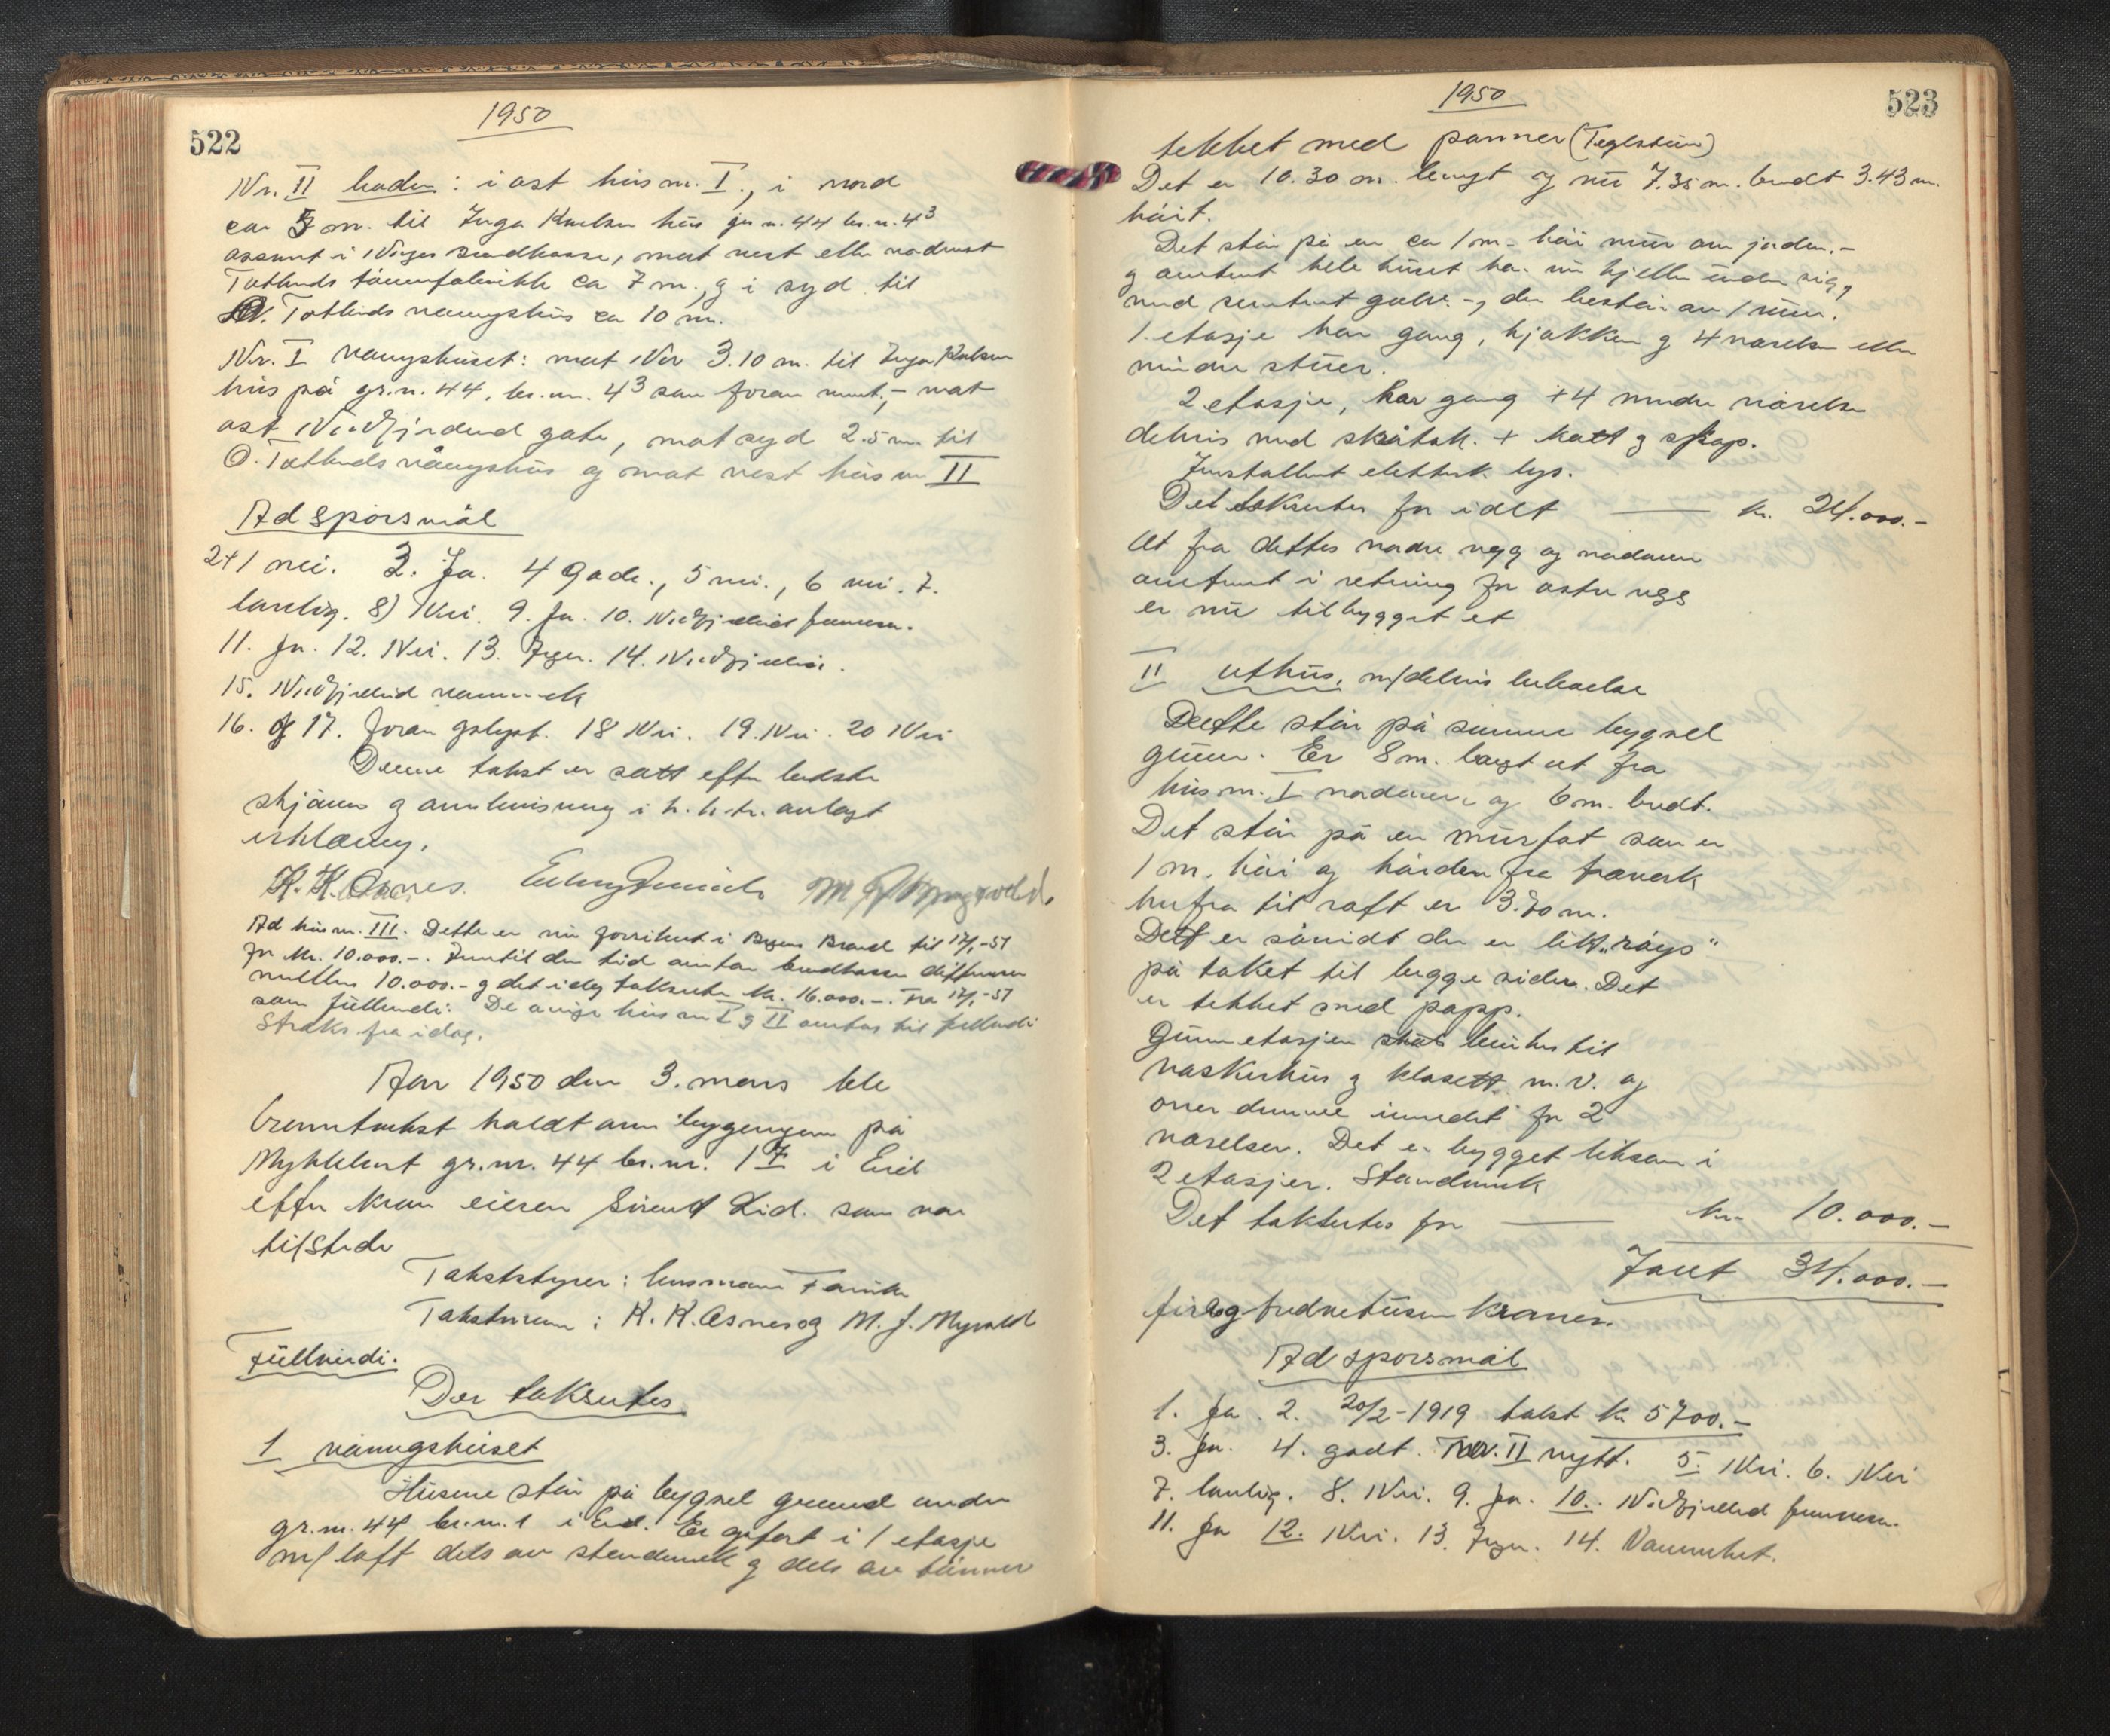 522
1950
Nr. II boden: i ost hus nr. I., i nord
ca 3 m. til Inga hus gr.n. 44 br.n. 4³
assurert i Norges brandkasse, mot vest eller nordvest
Totlands ca 7 m., og i syd til
O. Totlands våningshus ca 10 m.
Nr. I våningshuset: mot Nor 3.10 m. til Inga
hus på gr.n. 44, br.nr. 43 som foran nevnt, - mot
ost Nordfjordeid gate, mot syd 2.5 m til
O. Totlands våningshus og mot vest hus nr II
Ad spørsmål
2+1 nei. 3. Ja. 4 gode., 5 nei., 6 nei. 7.
lovlig. 8) Nei. 9. Ja. 10. Nordfjordeid
11. Ja. 12. Nei. 13. Ingen. 14. Nordfjordeid.
15. Nordfjordeid vannverk
16. og 17. foran oplyst. 18 Nei. 19. Nei. 20 Nei
Denne takst er satt efter bedste
skjønn og overbevisning i h. h. t. avlagt
erklæring.
K. K. Osnes. M J Myrvold.
Ad hus nr. III. Dette er nu forsikret i Bergens Brand til 17/1-51
for kr. 10.000.-. Inntil den tid overtar brandkassen differensen
mellem 10.000.- og det idag takserte kr. 16.000.-. Fra 17/1-51
som fullverdi: De øvrige hus nr I og II overtas til fullverdi
straks fra idag.
Aar 1950 den 3. mars ble
branntakst holdt over bygningene på
Myklebust gr.nr. 44 br.nr. 17 i Eid
efter krav eieren Sivert Lid. som var
tilstede
Takststyrer: lensmann
Takstmenn: K. K. Osnes og M. J. Myrvold
Fullverdi.
Der takseres
1 våningshuset
Husene står på bygsel grunn under
gr.nr. 44 br.nr. 1 i Eid. Er opført i 1 etasje
m/ loft dels av stenderverk og dels av tømmer
523
1950
tekket med panner (Teglstein)
Det er 10.30 m. langt og nu 7.35 m. bredt 3.43 m.
høit.
Det står på en ca 1 m. høi mur over jorden.-
og omtrent hele huset har nu kjeller under sig,
med sementert golv -, den består av 1 rum.
1. etasje har gang, kjøkken og 4 værelser eller
mindre stuer.
2 etasje, har gang + 4 mindre værelser
delvis med skråtak. + kott og skap.
Installert elektrisk lys.
Det takseres for idet kr. 24.000.-
Ut fra dettes nordre vegg og nordover
omtrent i retning for østre vegg
er nu tilbygget et
II uthus, m/delvis bekvelse
Dette står på samme bygsel
grunn. Er 8 m. langt ut fra
hus nr. I nordover og 6 m. bredt.
Det står på en murfot som er
1 m. høi og høiden fra treverk
herfra til raft er 3.70 m.
Det er såvidt der er litt "røys"
på taket til begge sider. Det
er tekket med papp.
Grunnetasjen skal brukes til
vaskerhus og klosett m.v. og
over denne innredet for 2
værelser. Det er bygget liksom i
2 etasjer. Standverk
Det takseres for kr. 10.000.-
Ialt 34.000.-
firogtredvetusen kroner.
Ad spørsmål
1. Ja. 2. 20/2-1919 takst kr 5700.-
3. Ja. 4. godt. Nr. II nytt. 5. Nei. 6. Nei
7. lovlig. 8. Nei. 9. Ja. 10. Nordfjordeid
11. Ja 12. Nei. 13. Ingen. 14. Vannverket.